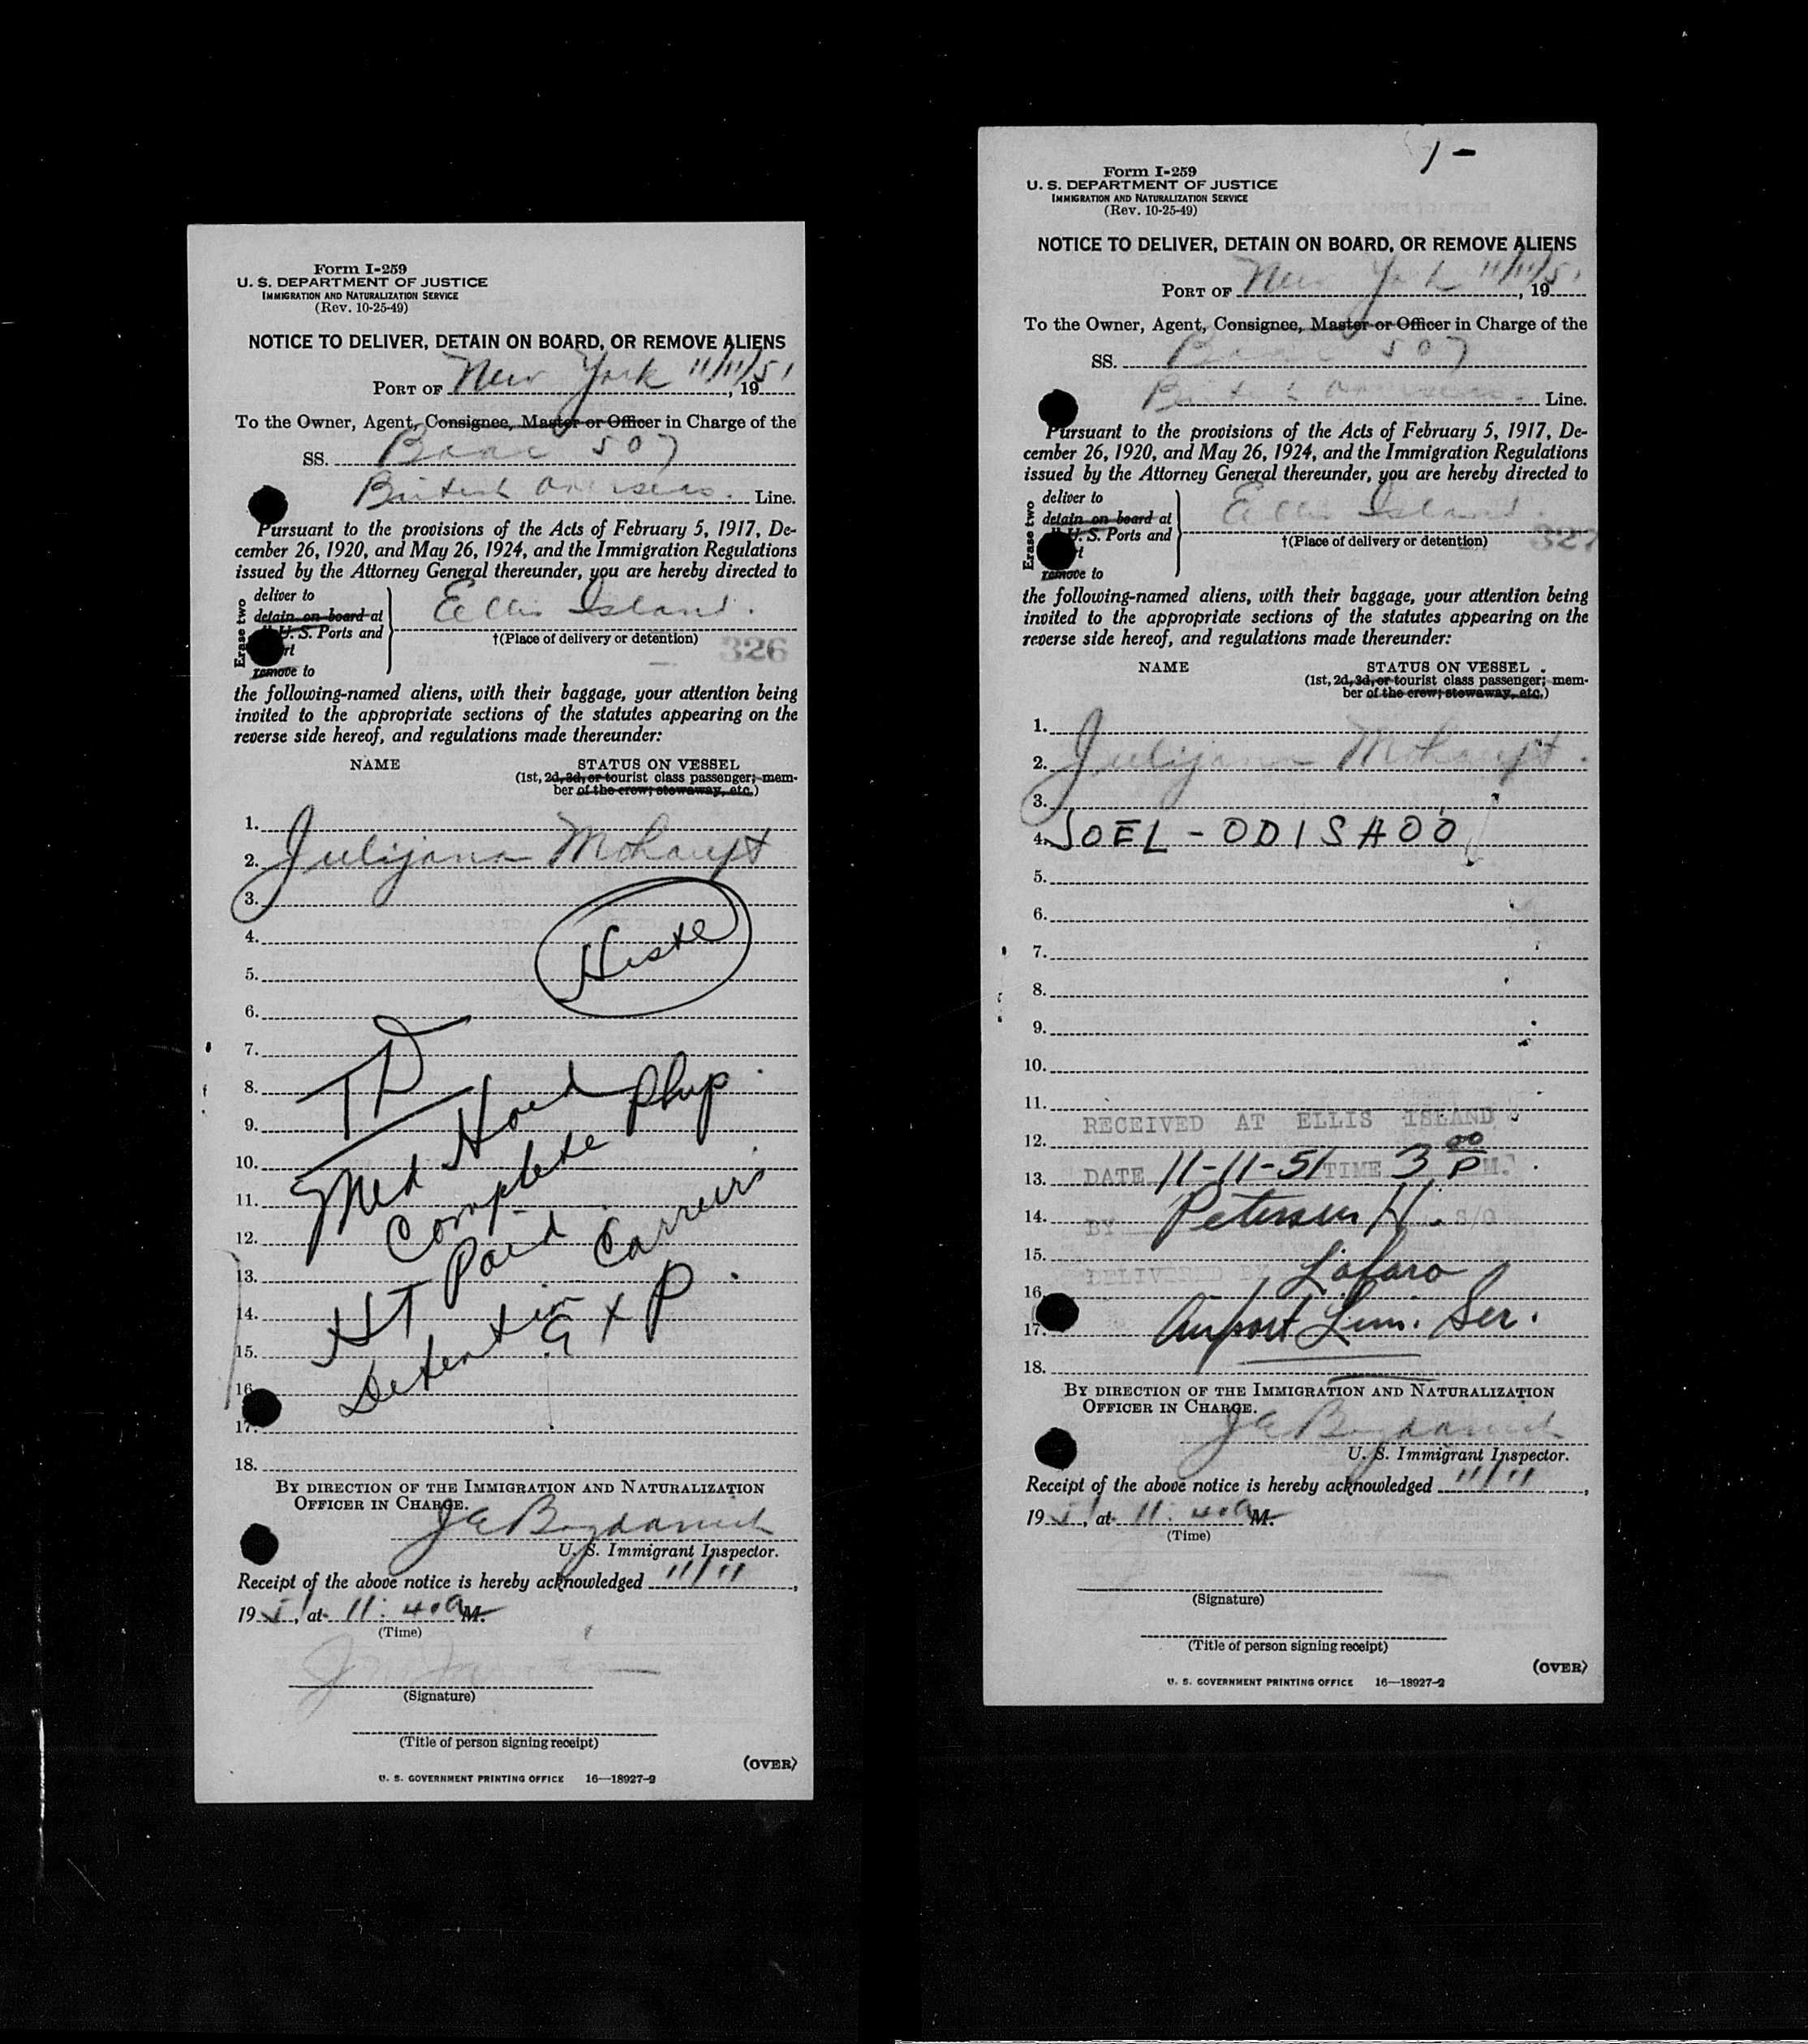 Form I-259
U. S. DEPARTMENT OF JUSTICE
IMMIGRATION AND NATURALIZATION SERVICE
(Rev. 10-25-49)
NOTICE TO DELIVER, DETAIN ON BOARD, OR REMOVE ALIENS
PORT OF New York 11/11/51, 19
To the Owner, Agent, Consignee, Master or Officer in Charge of the
SS. Boac 507
British Overseas. Line.
Pursuant to the provisions of the Acts of February 5, 1917, De-
cember 26, 1920, and May 26, 1924, and the Immigration Regulations
issued by the Attorney General thereunder, you are hereby directed to
Erase two
deliver to
detain on board at
U. S. Ports and
remove to
Ellis Island.
†(Place of delivery or detention)
326
the following-named aliens, with their baggage, your attention being
invited to the appropriate sections of the statutes appearing on the
reverse side hereof, and regulations made thereunder:
NAME STATUS ON VESSEL
(1st, 2d, 3d, or tourist class passenger; mem-
ber of the crew; stowaway, etc.)
1.
2. Julijana Mohaupt
3.
4.
5.
6.
7.
8. TD
9.
10. Med Hold
11. Complete
12.
13. HT Paid
14.
15. Detention Exp.
16.
17.
18.
BY DIRECTION OF THE IMMIGRATION AND NATURALIZATION
OFFICER IN CHARGE.
J E Bogdanich
U. S. Immigrant Inspector.
Receipt of the above notice is hereby acknowledged 11/11,
1951, at 11:40 a M.
(Time)
(Signature)
(Title of person signing receipt)
(OVER)
U. S. GOVERNMENT PRINTING OFFICE 16—18927-2
1-
Form I-259
U. S. DEPARTMENT OF JUSTICE
IMMIGRATION AND NATURALIZATION SERVICE
(Rev. 10-25-49)
NOTICE TO DELIVER, DETAIN ON BOARD, OR REMOVE ALIENS
PORT OF New York 11/11/51, 19
To the Owner, Agent, Consignee, Master or Officer in Charge of the
SS. Boac 507
British Overseas. Line.
Pursuant to the provisions of the Acts of February 5, 1917, De-
cember 26, 1920, and May 26, 1924, and the Immigration Regulations
issued by the Attorney General thereunder, you are hereby directed to
Erase two
deliver to
detain on board at
U. S. Ports and
remove to
Ellis Island.
†(Place of delivery or detention)
327
the following-named aliens, with their baggage, your attention being
invited to the appropriate sections of the statutes appearing on the
reverse side hereof, and regulations made thereunder:
NAME STATUS ON VESSEL
(1st, 2d, 3d, or tourist class passenger; mem-
ber of the crew; stowaway, etc.)
1.
2. Julijana Mohaupt.
3.
4. JOEL - ODISAOO
5.
6.
7.
8.
9.
10.
11.
RECEIVED AT ELLIS ISLAND
12.
13. DATE 11-11-51 TIME 3 00 P M.
14. BY Petersen H. S/O
15.
16. DELIVERED BY Lafaro
17. Airport Lim. Ser.
18.
BY DIRECTION OF THE IMMIGRATION AND NATURALIZATION
OFFICER IN CHARGE.
J E Bogdanich
U. S. Immigrant Inspector.
Receipt of the above notice is hereby acknowledged 11/11,
1951, at 11:40 a M.
(Time)
(Signature)
(Title of person signing receipt)
(OVER)
U. S. GOVERNMENT PRINTING OFFICE 16—18927-2